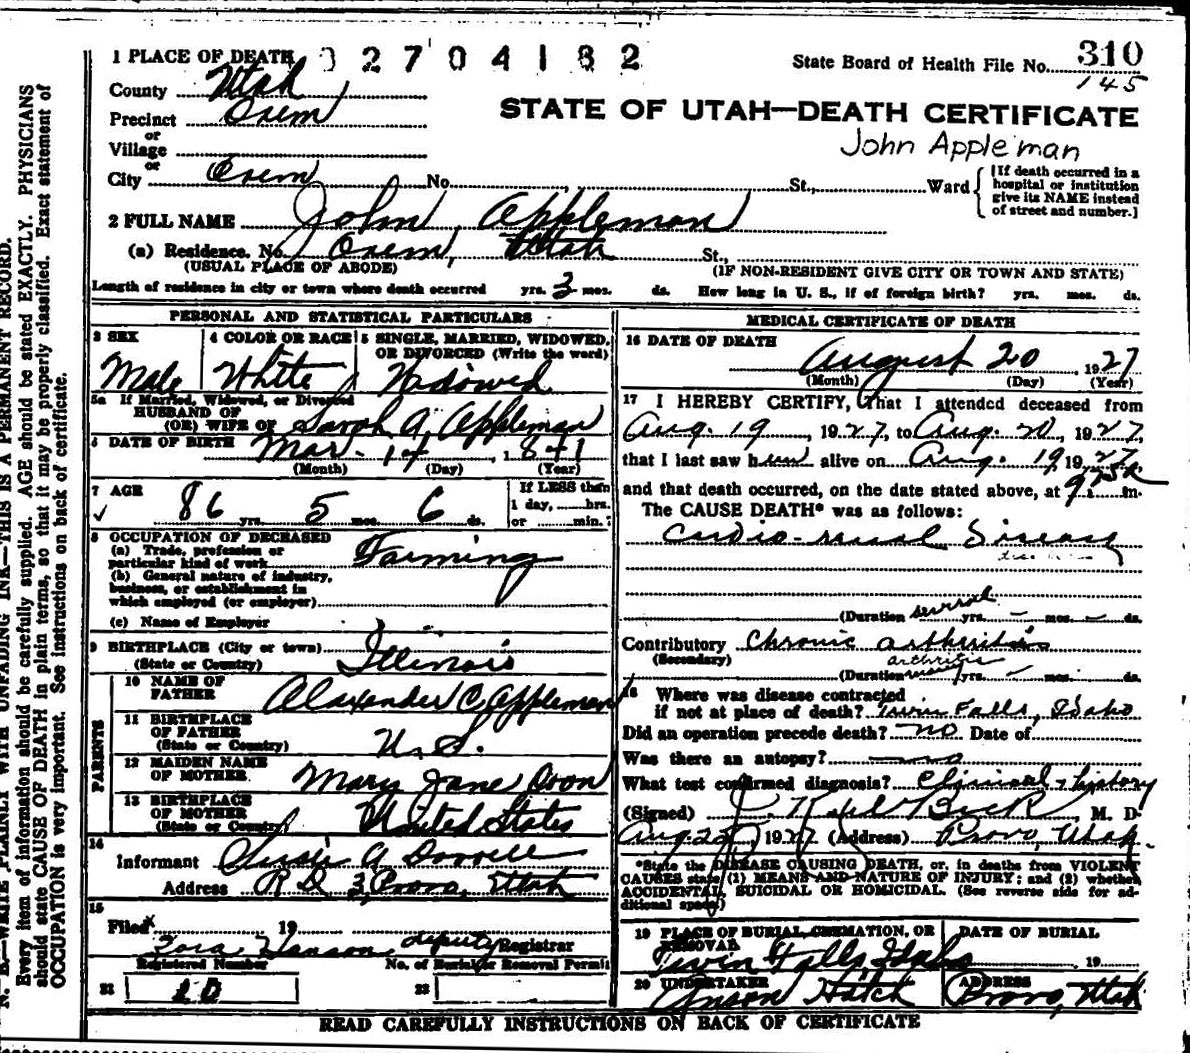 1 PLACE OF DEATH 02704182
State Board of Health File No. 310
145
County Utah
Precinct Orem
or
Village
or
City Orem No. St., Ward
STATE OF UTAH—DEATH CERTIFICATE
John Appleman
[If death occurred in a hospital or institution give its NAME instead of street and number.]
2 FULL NAME John Appleman
(a) Residence. No. Orem, Utah St.,
(USUAL PLACE OF ABODE) (IF NON-RESIDENT GIVE CITY OR TOWN AND STATE)
Length of residence in city or town where death occurred yrs. 3 mos. ds. How long in U. S., if of foreign birth? yrs. mos. ds.
PERSONAL AND STATISTICAL PARTICULARS
3 SEX Male
4 COLOR OR RACE White
5 SINGLE, MARRIED, WIDOWED, OR DIVORCED (Write the word) Widowed
5a If Married, Widowed, or Divorced
HUSBAND OF
(OR) WIFE OF Sarah A. Appleman
6 DATE OF BIRTH Mar. 14 1841
(Month) (Day) (Year)
7 AGE 86 yrs. 5 mos. 6 ds.
If LESS than
1 day, hrs.
or min.
8 OCCUPATION OF DECEASED
(a) Trade, profession or
particular kind of work Farming
(b) General nature of industry,
business, or establishment in
which employed (or employer)
(c) Name of Employer
9 BIRTHPLACE (City or town)
(State or Country) Illinois
PARENTS
10 NAME OF
FATHER Alaxander C. Appleman
11 BIRTHPLACE
OF FATHER
(State or Country) U. S.
12 MAIDEN NAME
OF MOTHER Mary Jane Doon
13 BIRTHPLACE
OF MOTHER
(State or Country) United States
14
Informant A
Address R D 3, Provo, Utah
15
Filed 19
Zora Hanson deputy Registrar
Registered Number No. of Burial or Removal Permit
22 20 22
MEDICAL CERTIFICATE OF DEATH
16 DATE OF DEATH
August 20, 1927
(Month) (Day) (Year)
17 I HEREBY CERTIFY, That I attended deceased from
Aug. 19, 1927, to Aug. 20, 1927,
that I last saw him alive on Aug. 19, 1927,
and that death occurred, on the date stated above, at m.
The CAUSE DEATH* was as follows:
Cardio-renal Disease
(Duration several yrs. – mos. – ds.
Contributory Chronic arthritis
(Secondary) arthritis
(Duration yrs. – mos. ds.
18 Where was disease contracted
if not at place of death? Twin Falls, Idaho
Did an operation precede death? no Date of
Was there an autopsy? no
What test confirmed diagnosis? Clinical & history
(Signed) J. Beck, M. D.
Aug. 1927 (Address) Provo, Utah.
*State the DISEASE CAUSING DEATH, or, in deaths from VIOLENT
CAUSES state (1) MEANS AND NATURE OF INJURY; and (2) whether
ACCIDENTAL, SUICIDAL OR HOMICIDAL. (See reverse side for ad-
ditional space.)
19 PLACE OF BURIAL, CREMATION, OR REMOVAL DATE OF BURIAL
Twin Falls, Idaho 19
20 UNDERTAKER ADDRESS
Anson Hatch Provo, Utah
READ CAREFULLY INSTRUCTIONS ON BACK OF CERTIFICATE
N. B.—WRITE PLAINLY WITH UNFADING INK—THIS IS A PERMANENT RECORD.
Every item of information should be carefully supplied. AGE should be stated EXACTLY. PHYSICIANS
should state CAUSE OF DEATH in plain terms, so that it may be properly classified. Exact statement of
OCCUPATION is very important. See instructions on back of certificate.